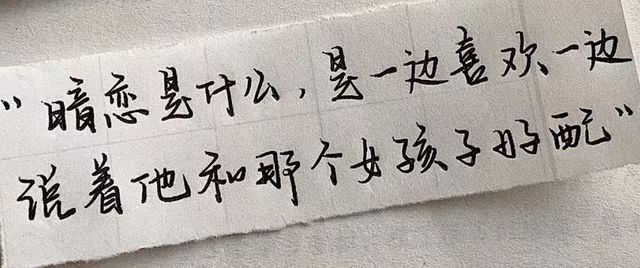 “暗恋是什么,是一边喜欢一边
说着他和那个女孩子好配”